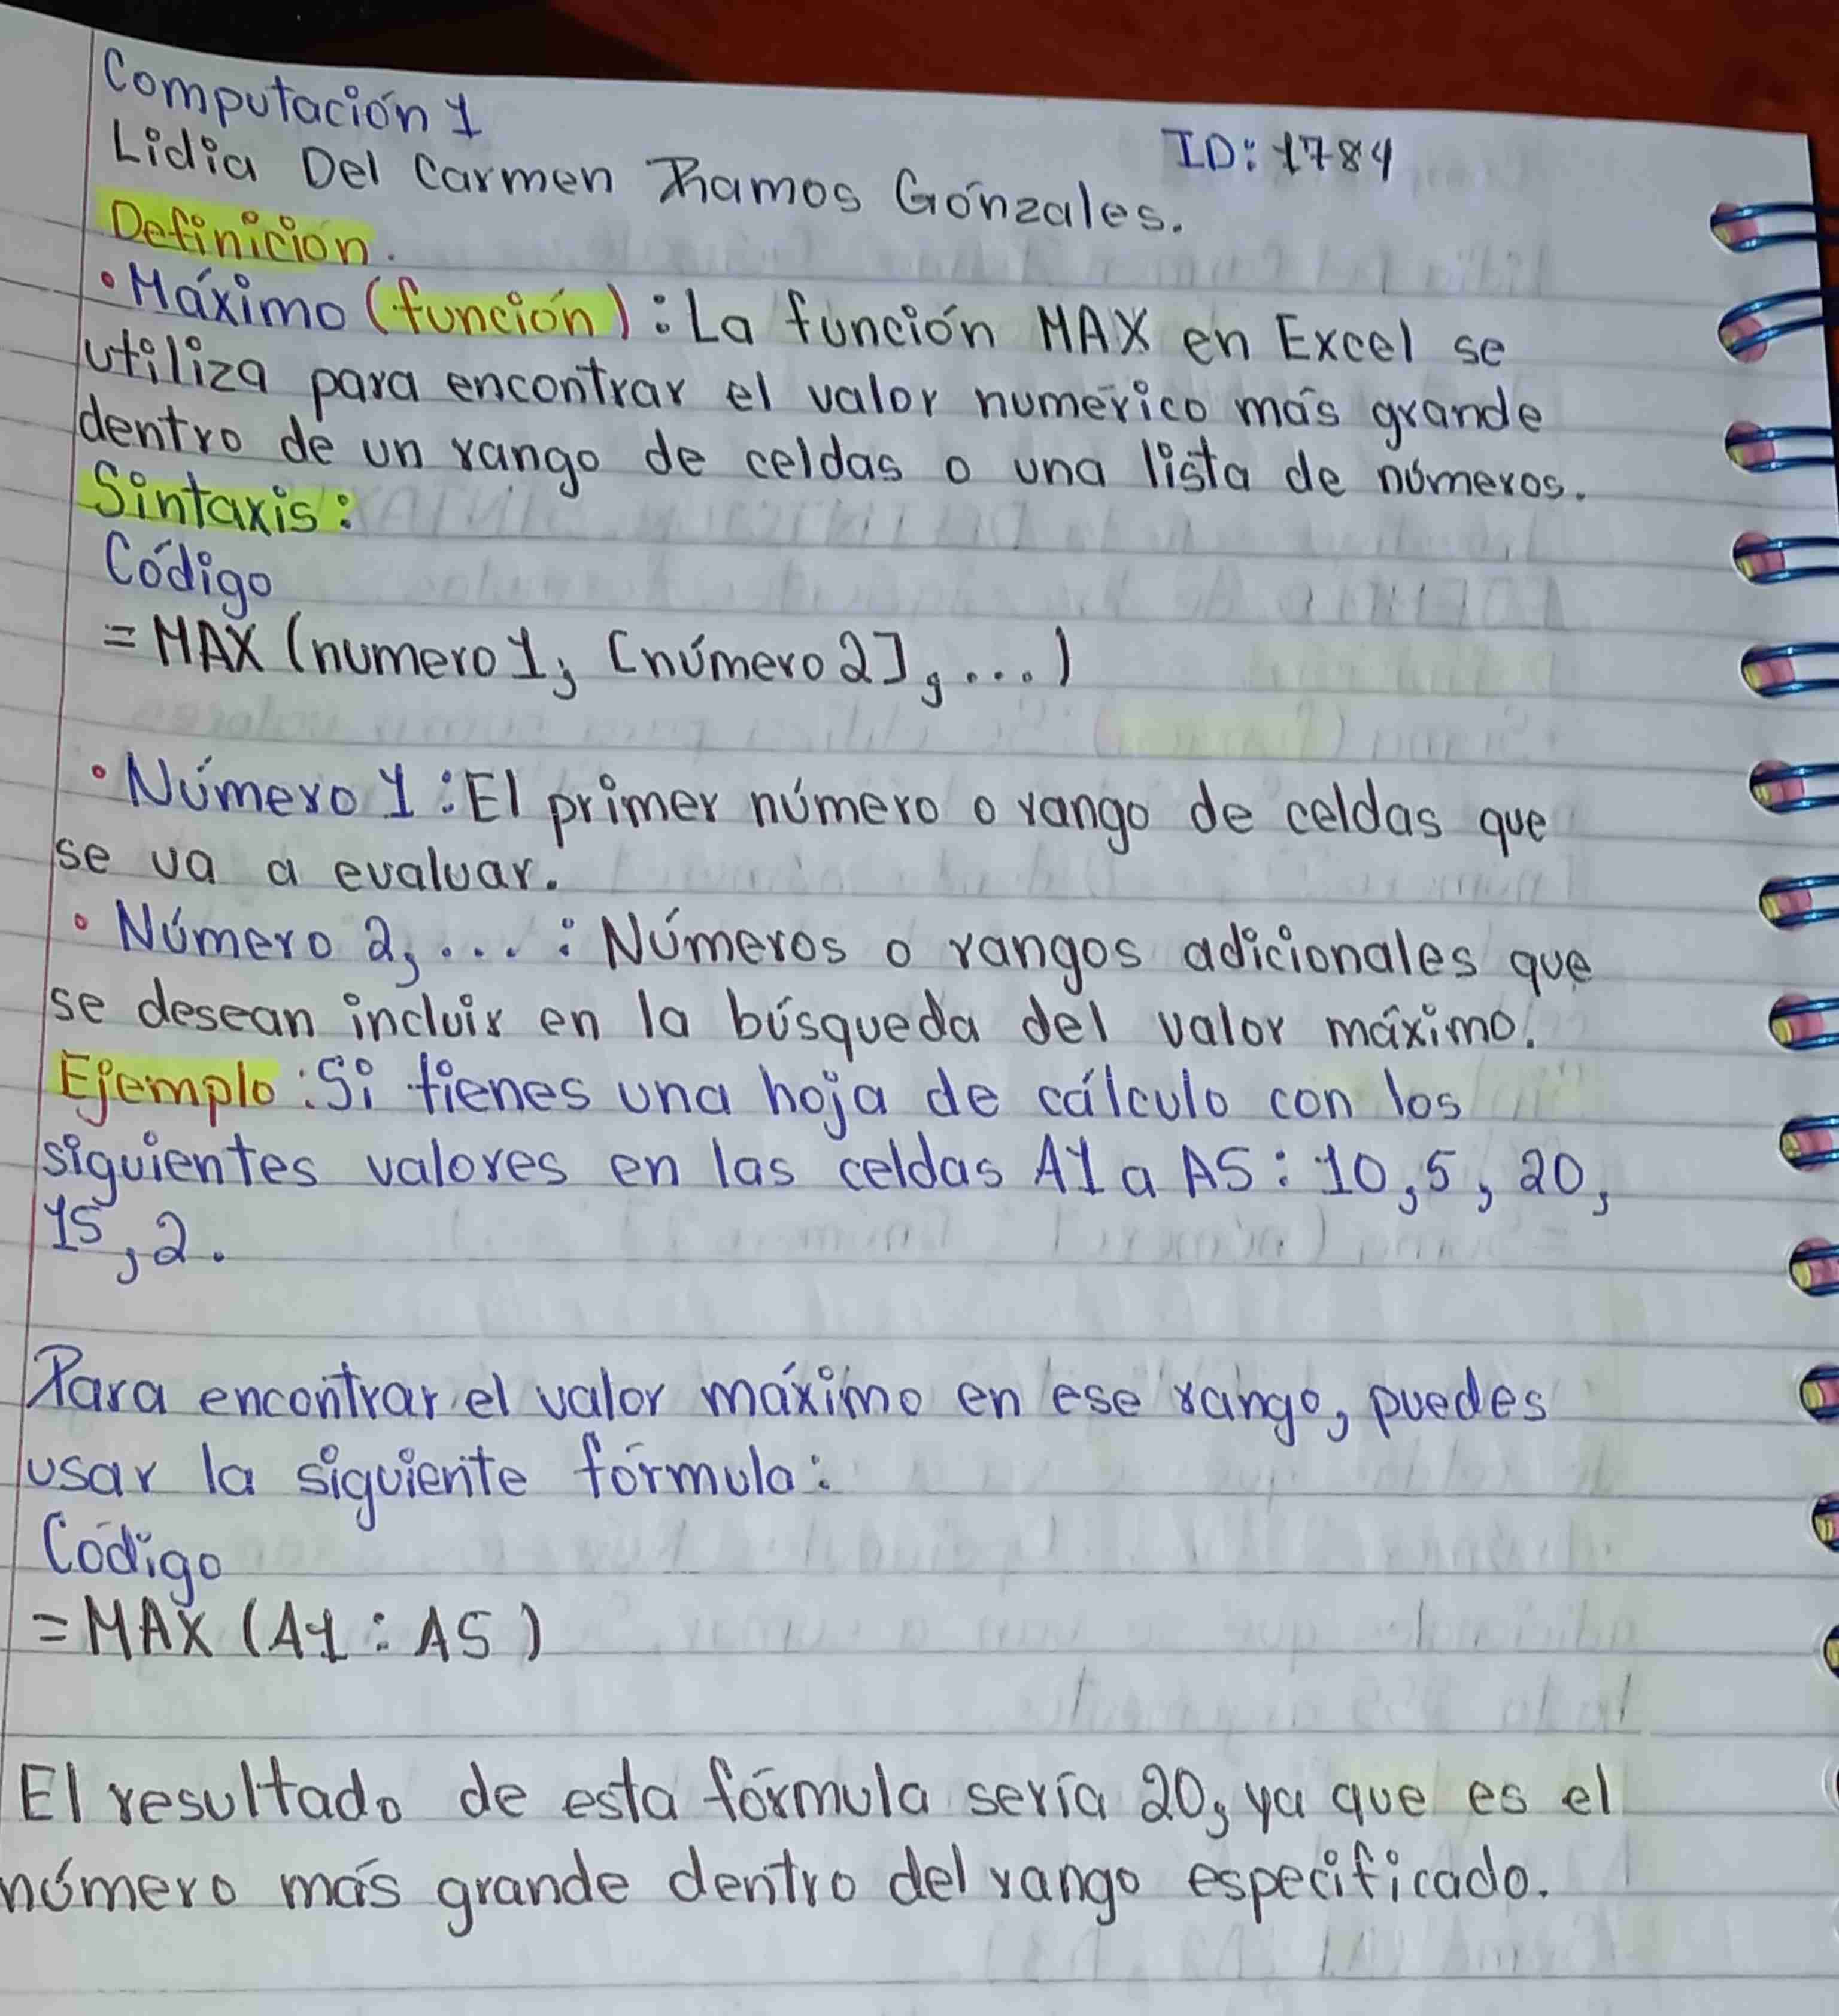 Computación 1
ID: 1784
Lidia Del Carmen Ramos Gónzales.
Definición.
• Máximo (función): La función MAX en Excel se
utiliza para encontrar el valor numérico más grande
dentro de un rango de celdas o una lista de números.
Sintaxis:
Código
= MAX (numero 1; [número 2], ...)
• Número 1: El primer número o rango de celdas que
se va a evaluar.
• Número 2, ... : Números o rangos adicionales que
se desean incluir en la búsqueda del valor máximo.
Ejemplo: Si tienes una hoja de cálculo con los
siguientes valores en las celdas A1 a A5: 10, 5, 20,
15, 2.
Para encontrar el valor máximo en ese rango, puedes
usar la siguiente fórmula:
Código
= MAX (A1 : A5)
El resultado de esta fórmula sería 20, ya que es el
número más grande dentro del rango especificado.